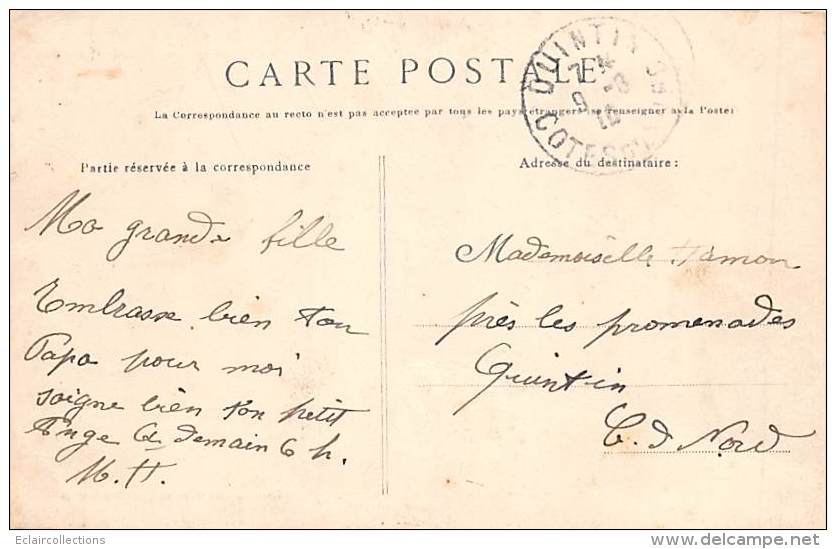 CARTE POSTALE
La Correspondance au recto n'est pas acceptée par tous les pays étrangers (se renseigner à la Poste)
Partie réservée à la correspondance
Adresse du destinataire :
QUINTIN
COTES-DU
Ma grande fille
Embrasse bien ton
Papa pour moi
soigne bien ton petit
Ange à demain 6 h.
M.H.
Mademoiselle Hamon
près les promenades
Quintin
C. d Nord
Eclaircollections
www.delcampe.net